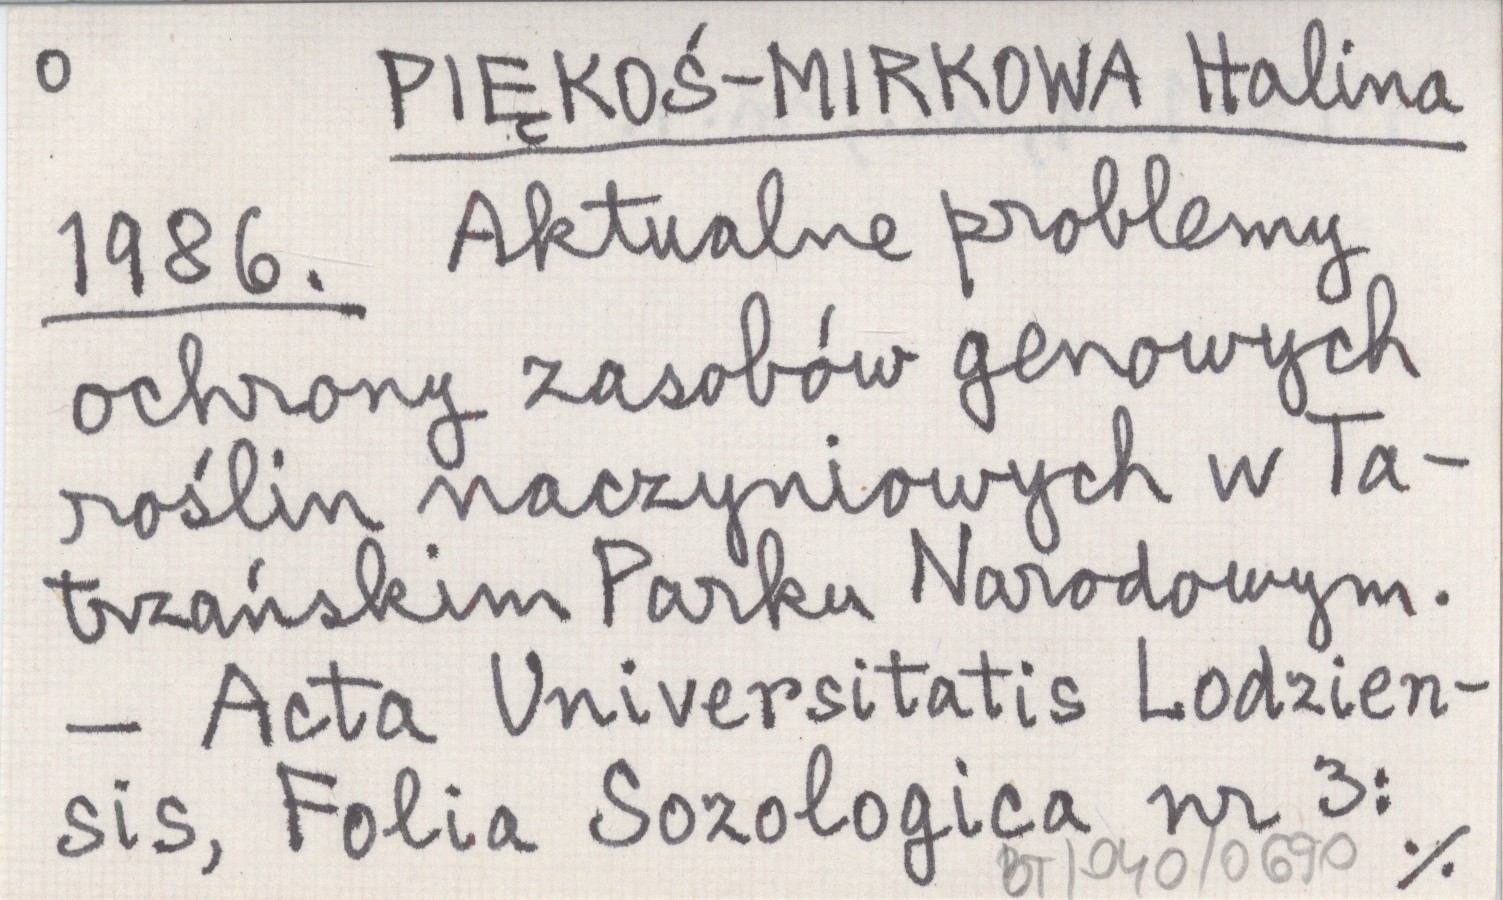 o PIĘKOŚ-MIRKOWA Halina
1986. Aktualne problemy
ochrony zasobów genowych
roślin naczyniowych w Ta-
trzańskim Parku Narodowym.
— Acta Universitatis Lodzien-
sis, Folia Sozologica nr 3:
BT/040/0690 ./.